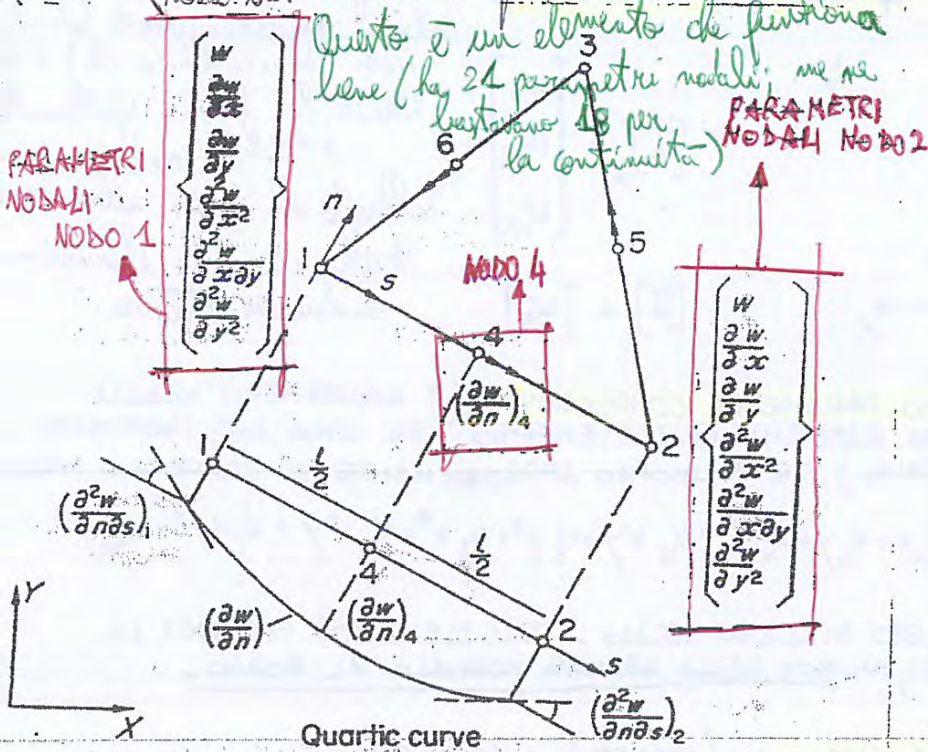 Questo è un elemento che funziona
bene (ha 21 parametri nodali; me ne
bastavano 18 per
la continuità)
PARAMETRI
NODALI
NODO 1
w
∂w/∂x
∂w/∂y
∂²w/∂x²
∂²w/∂x∂y
∂²w/∂y²
PARAMETRI
NODALI NODO 2
w
∂w/∂x
∂w/∂y
∂²w/∂x²
∂²w/∂x∂y
∂²w/∂y²
3
6
5
n
1
s
NODO 4
4
(∂w/∂n)₄
2
1
l/2
(∂²w/∂n∂s)₁
4
l/2
(∂w/∂n)
(∂w/∂n)₄
2
s
(∂²w/∂n∂s)₂
Y
X
Quartic curve